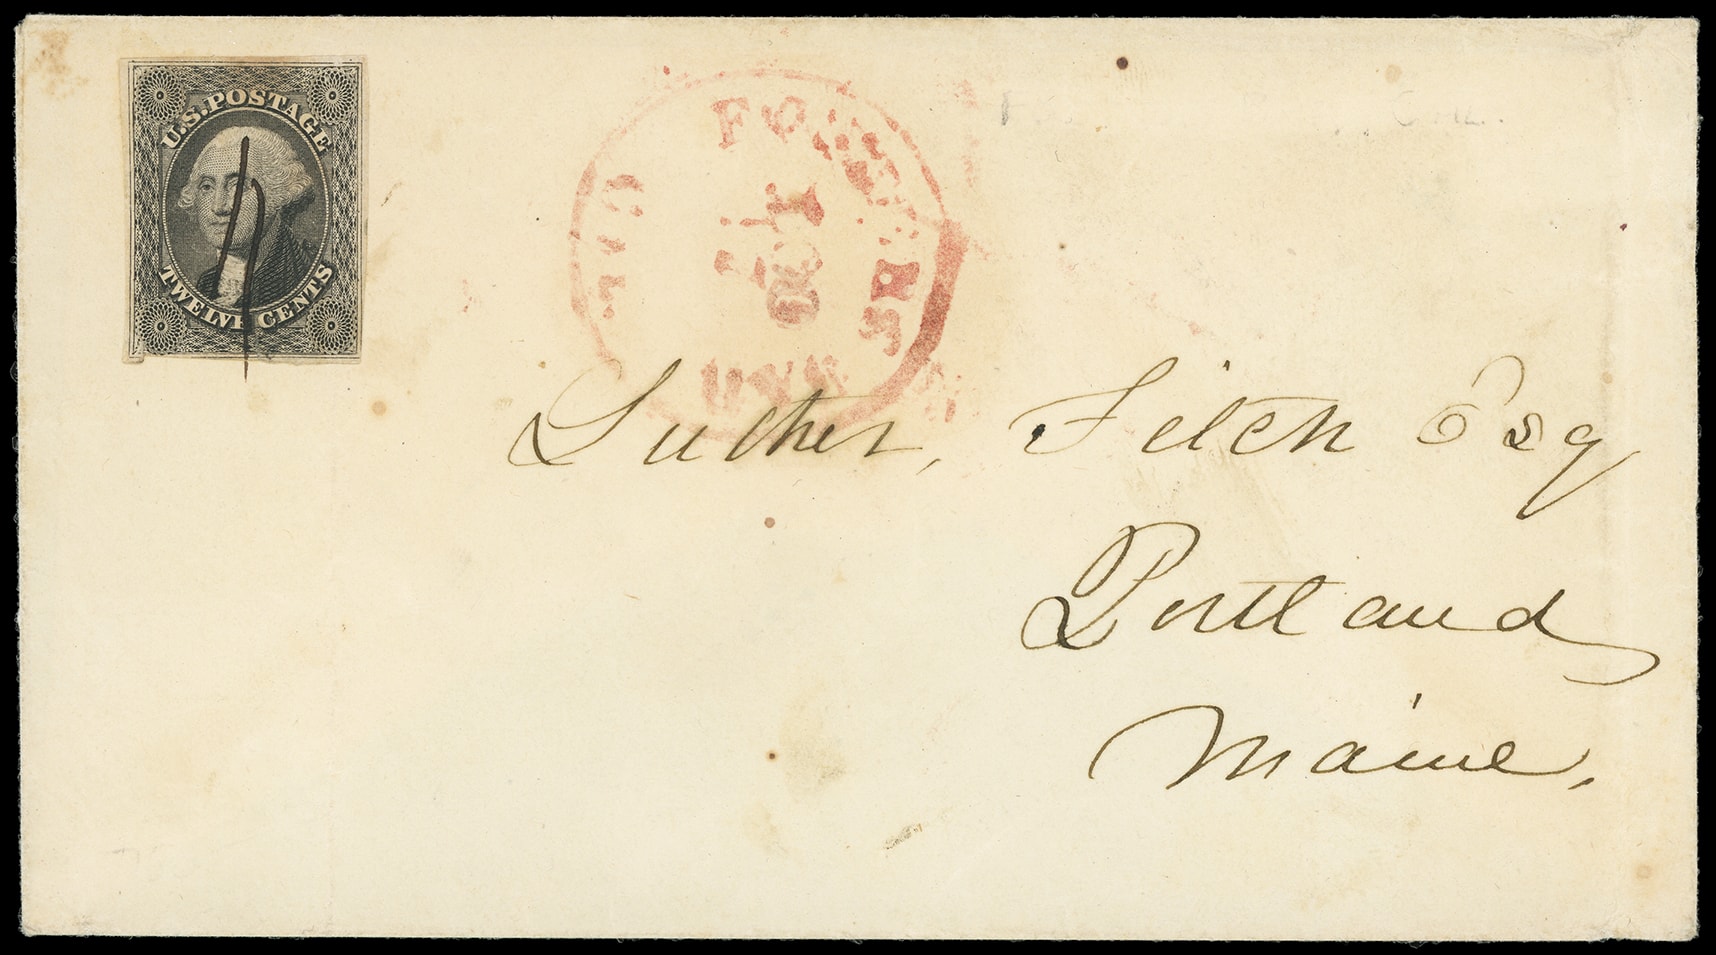 U.S. POSTAGE
TWELVE CENTS
OCT
Luther, Fitch Esq
Portland
Maine,